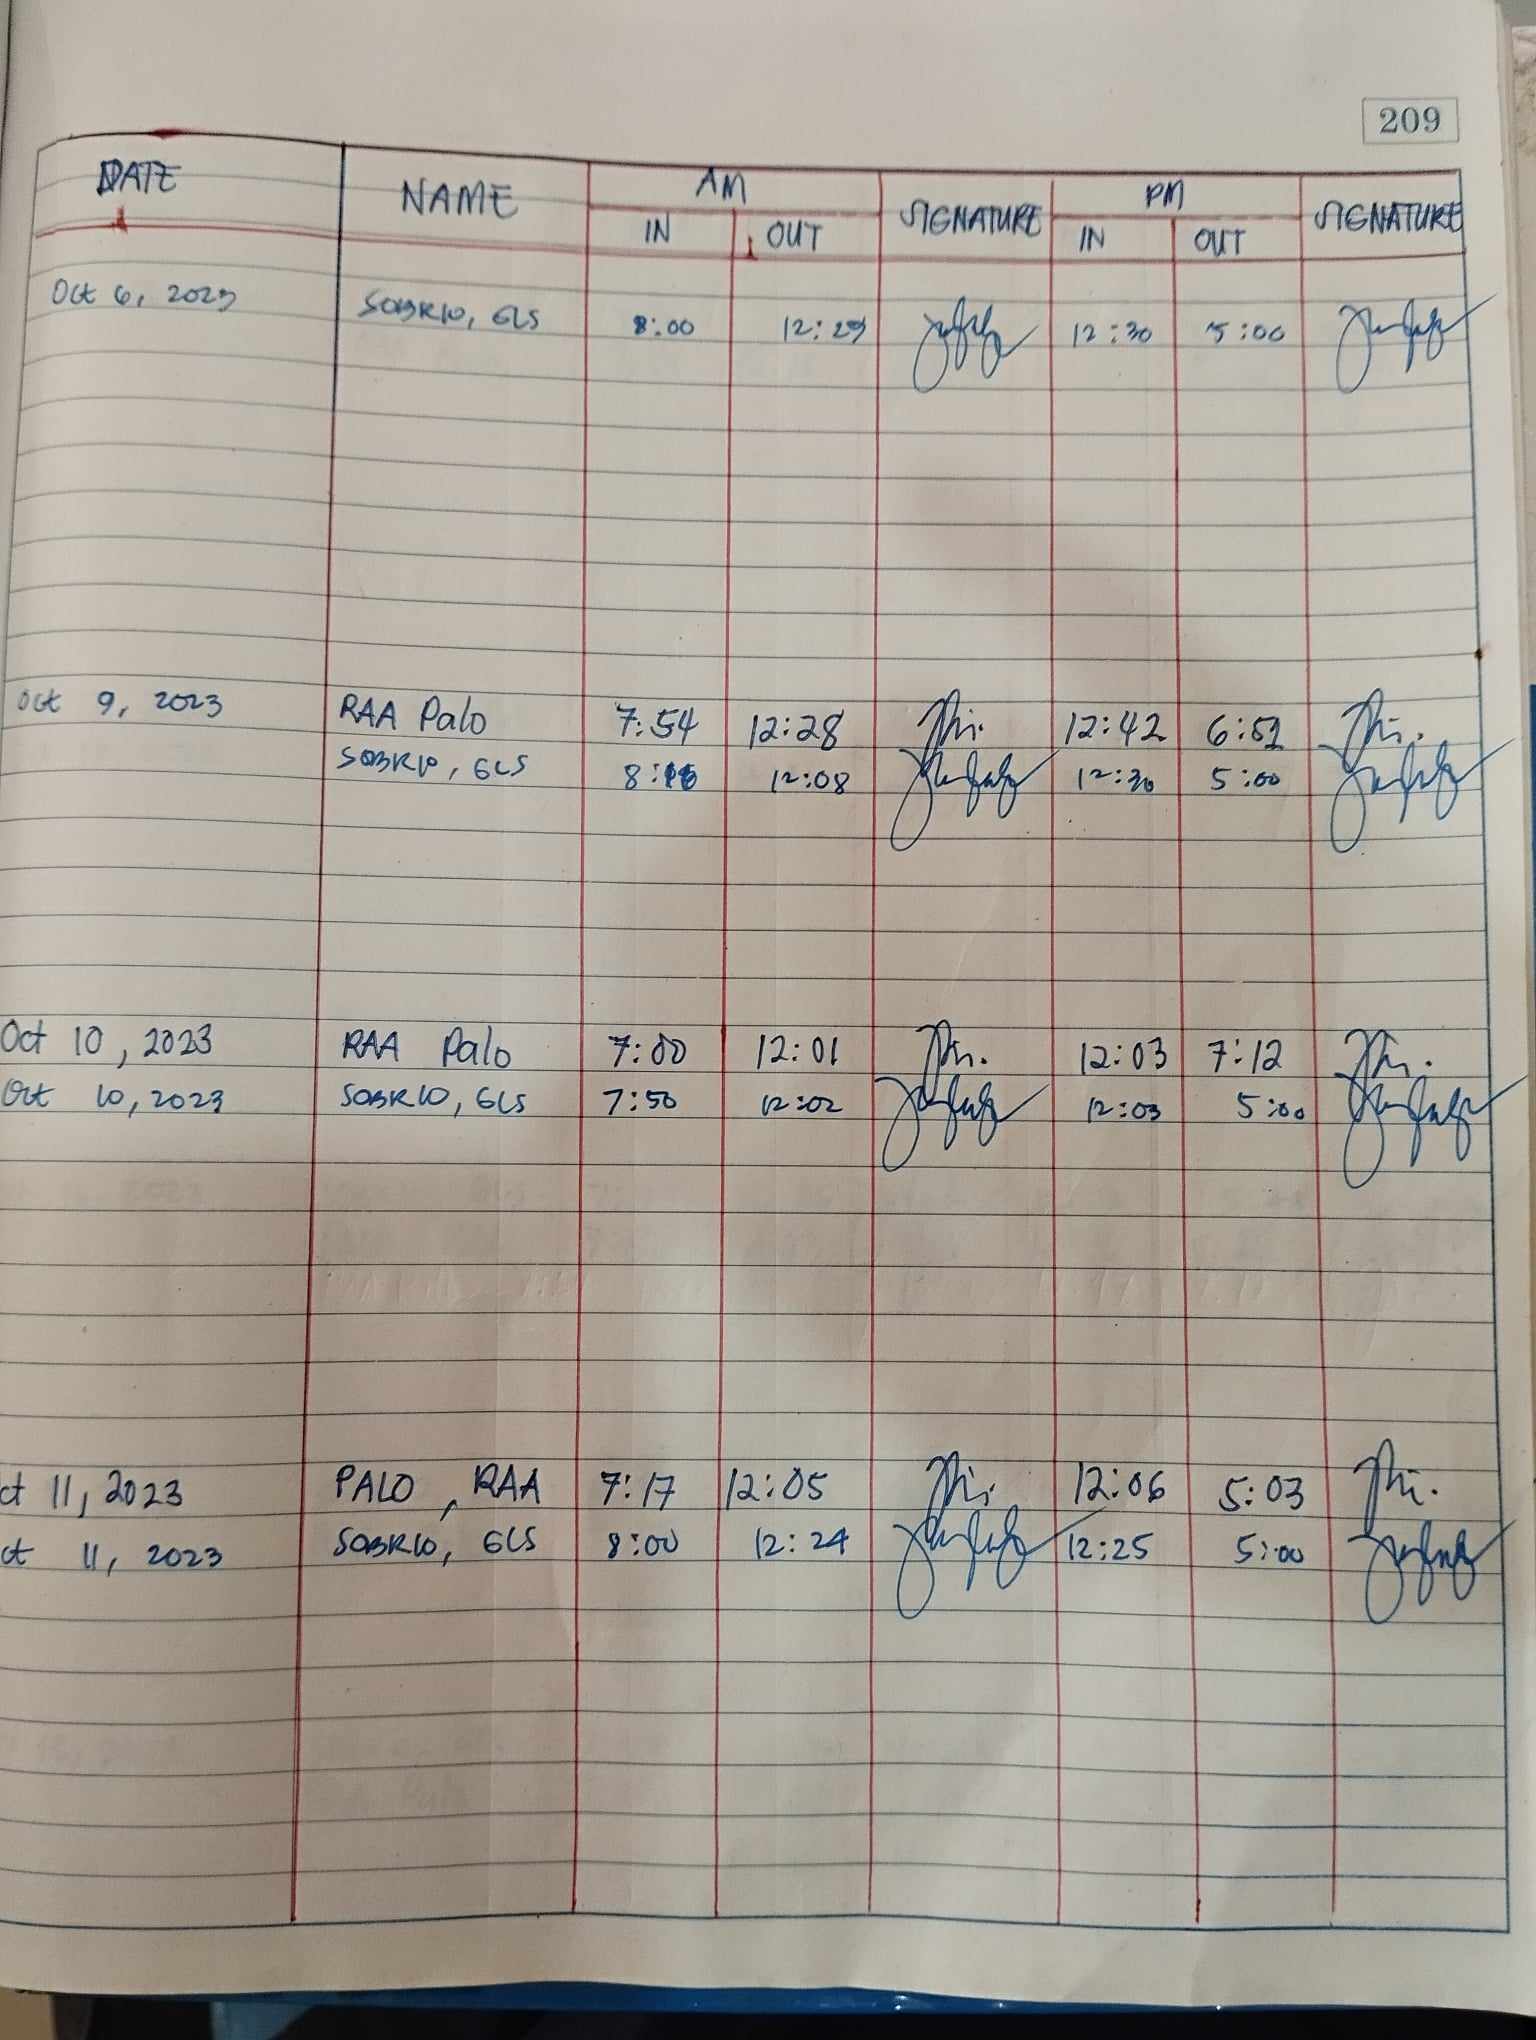 209
DATE NAME AM SIGNATURE PM SIGNATURE
IN OUT IN OUT
Oct 6, 2023 SOBRIO, GLS 8:00 12:29 12:30 5:00
Oct 9, 2023 RAA Palo 7:54 12:28 12:42 6:52
SOBRIO, GLS 12:08 12:30 5:00
Oct 10, 2023 RAA Palo 7:00 12:01 12:03 7:12
Oct 10, 2023 SOBRIO, GLS 7:50 12:02 12:03 5:00
ct 11, 2023 PALO, RAA 7:17 12:05 12:06 5:03
ct 11, 2023 SOBRIO, GLS 8:00 12:24 12:25 5:00